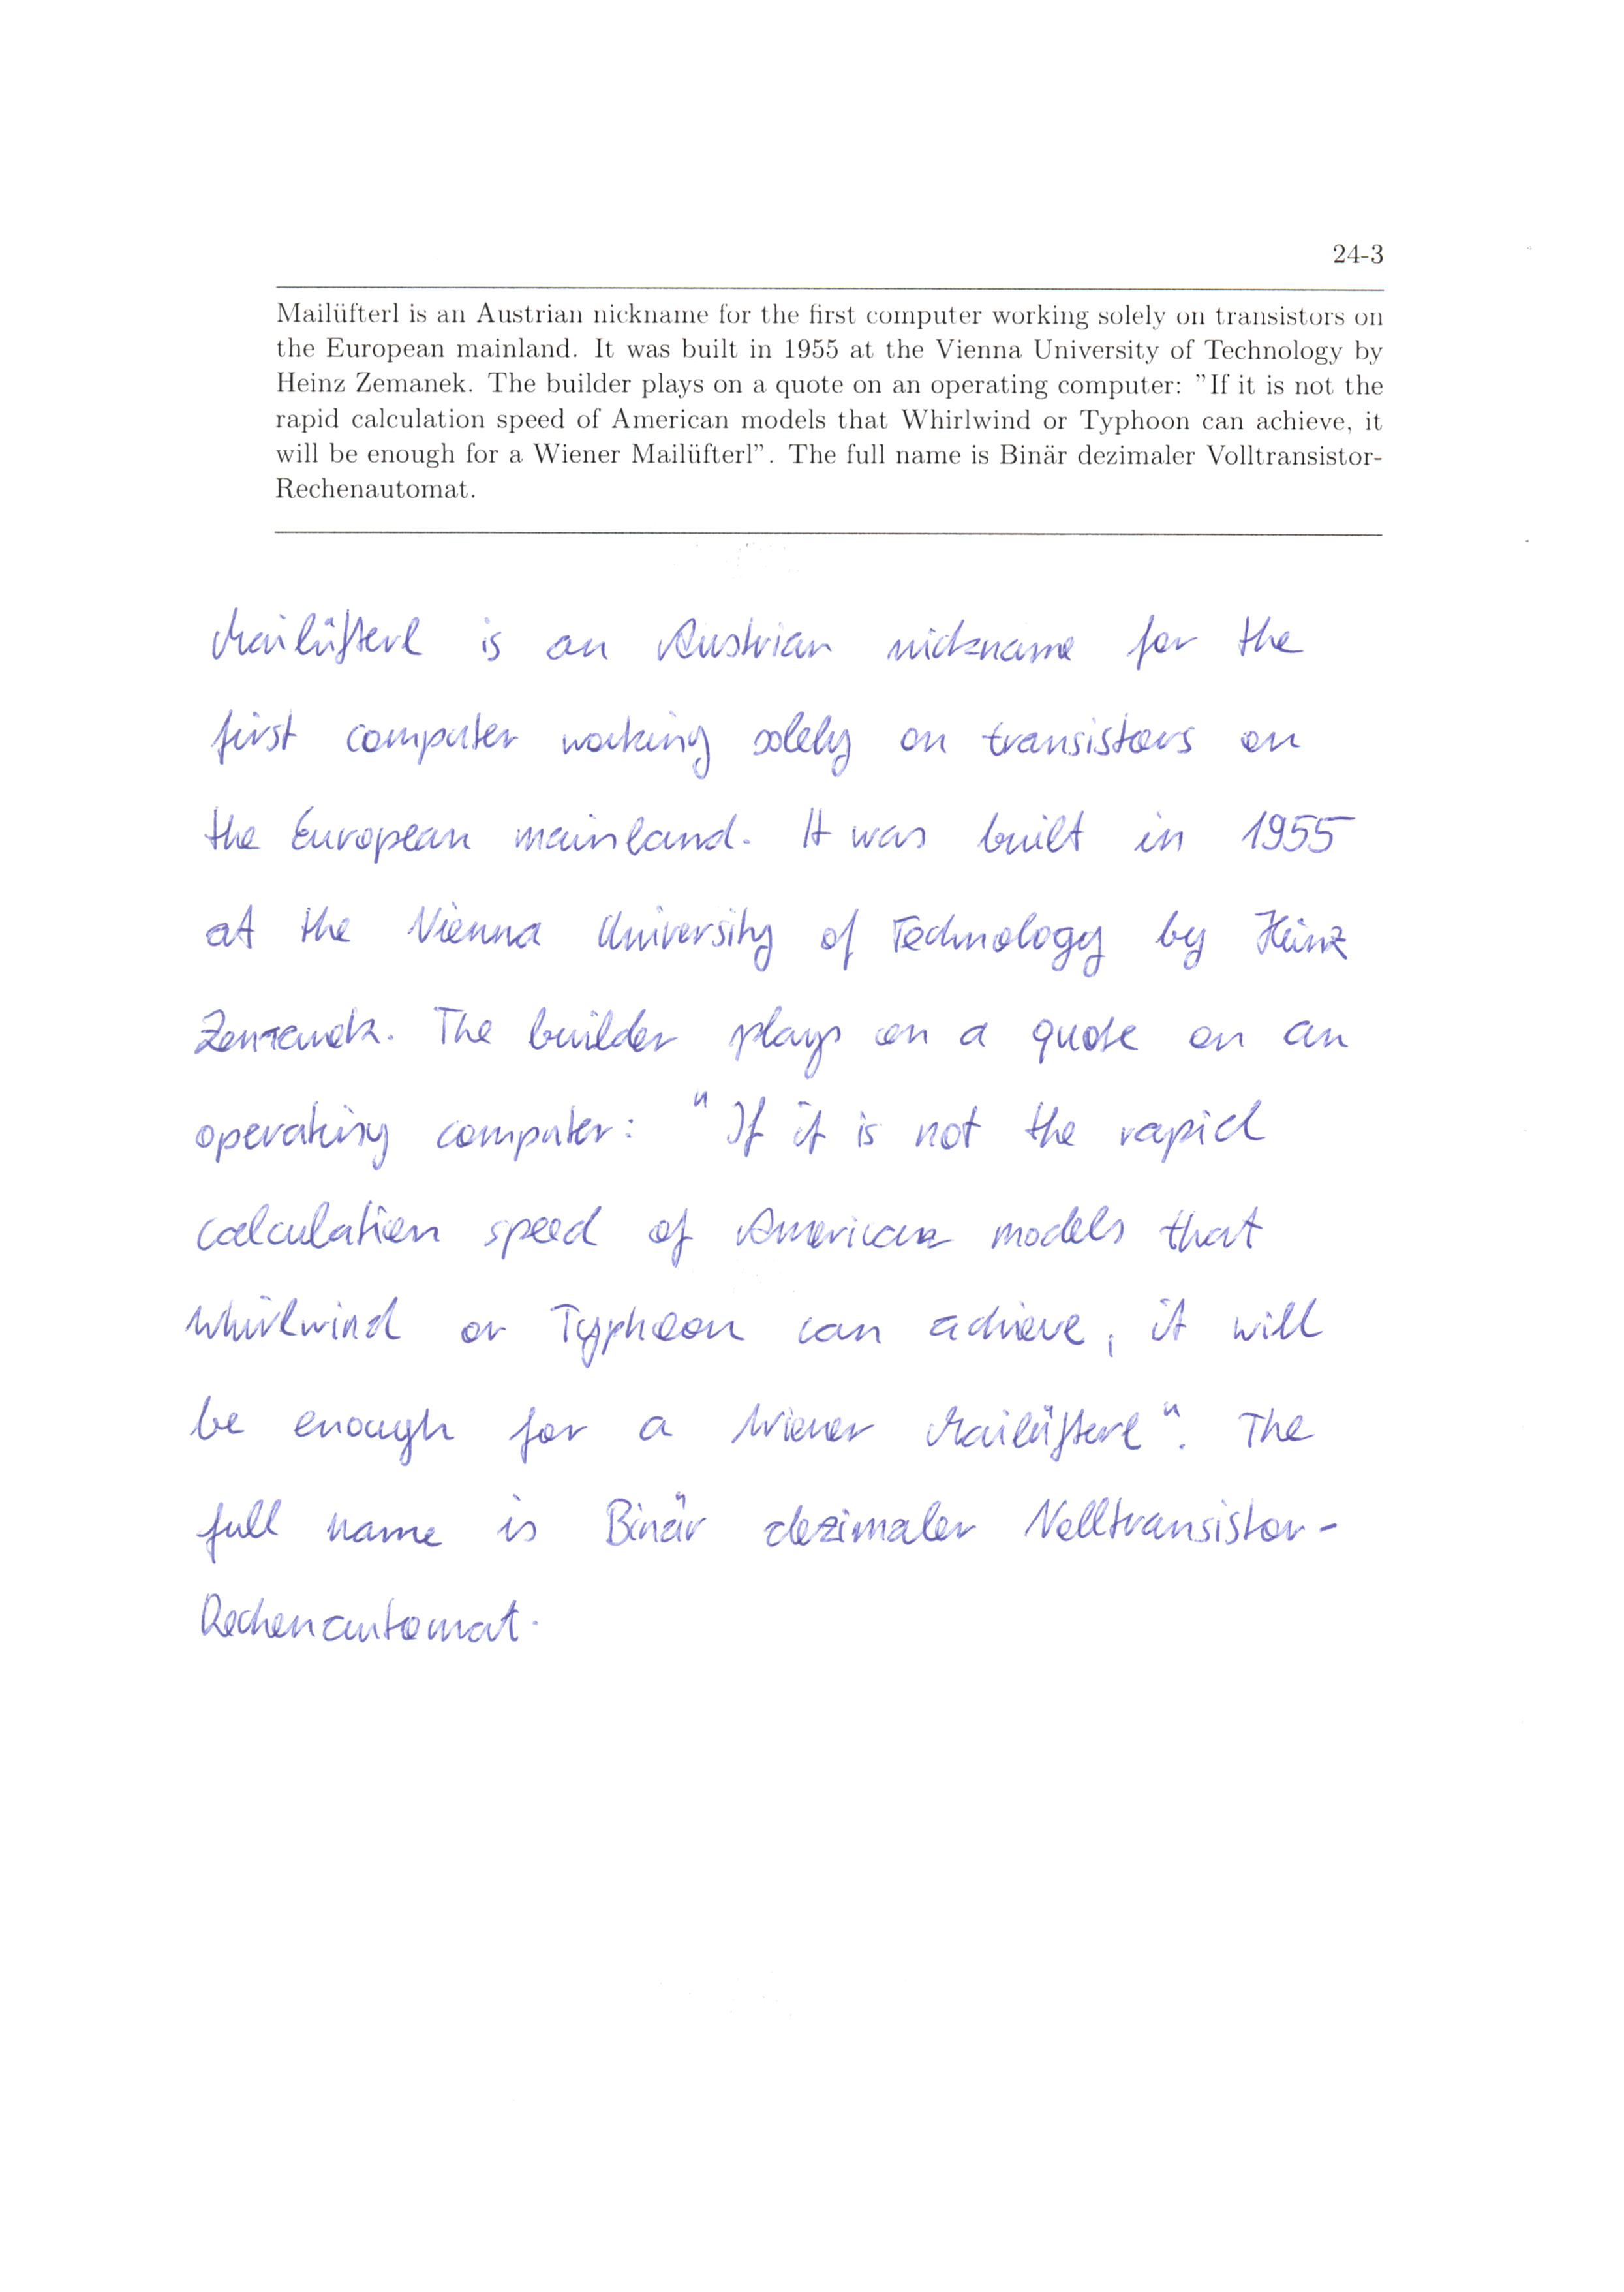 24-3
Mailüfterl is an Austrian nickname for the first computer working solely on transistors on
the European mainland. It was built in 1955 at the Vienna University of Technology by
Heinz Zemanek. The builder plays on a quote on an operating computer: "If it is not the
rapid calculation speed of American models that Whirlwind or Typhoon can achieve, it
will be enough for a Wiener Mailüfterl". The full name is Binär dezimaler Volltransistor-
Rechenautomat.
Mailüfterl is an Austrian nickname for the
first computer working solely on transistors on
the European mainland. It was built in 1955
at the Vienna University of Technology by Heinz
Zemanek. The builder plays on a quote on an
operating computer: "If it is not the rapid
calculation speed of American models that
Whirlwind or Typhoon can achieve, it will
be enough for a Wiener Mailüfterl". The
full name is Binär dezimaler Volltransistor-
Rechenautomat.